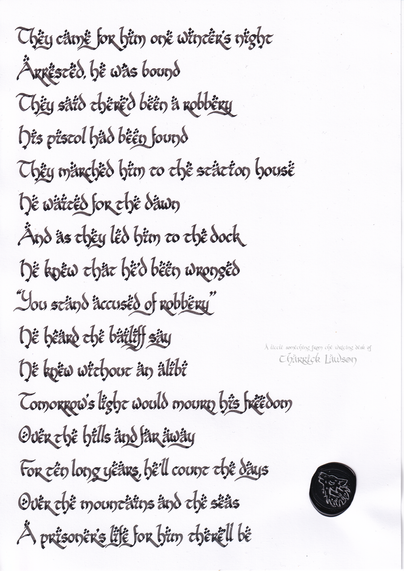 They came for him one winter's night
Arrested, he was bound
They said there'd been a robbery
His pistol had been found
They marched him to the station house
He waited for the dawn
And as they led him to the dock
He knew that he'd been wronged
"You stand accused of robbery"
He heard the bailiff say
He knew without an alibi
Tomorrow's light would mourn his freedom
Over the hills and far away
For ten long years, he'll count the days
Over the mountains and the seas
A prisoner's life for him there'll be
A little something from the writing desk of
Tharrick Lawson